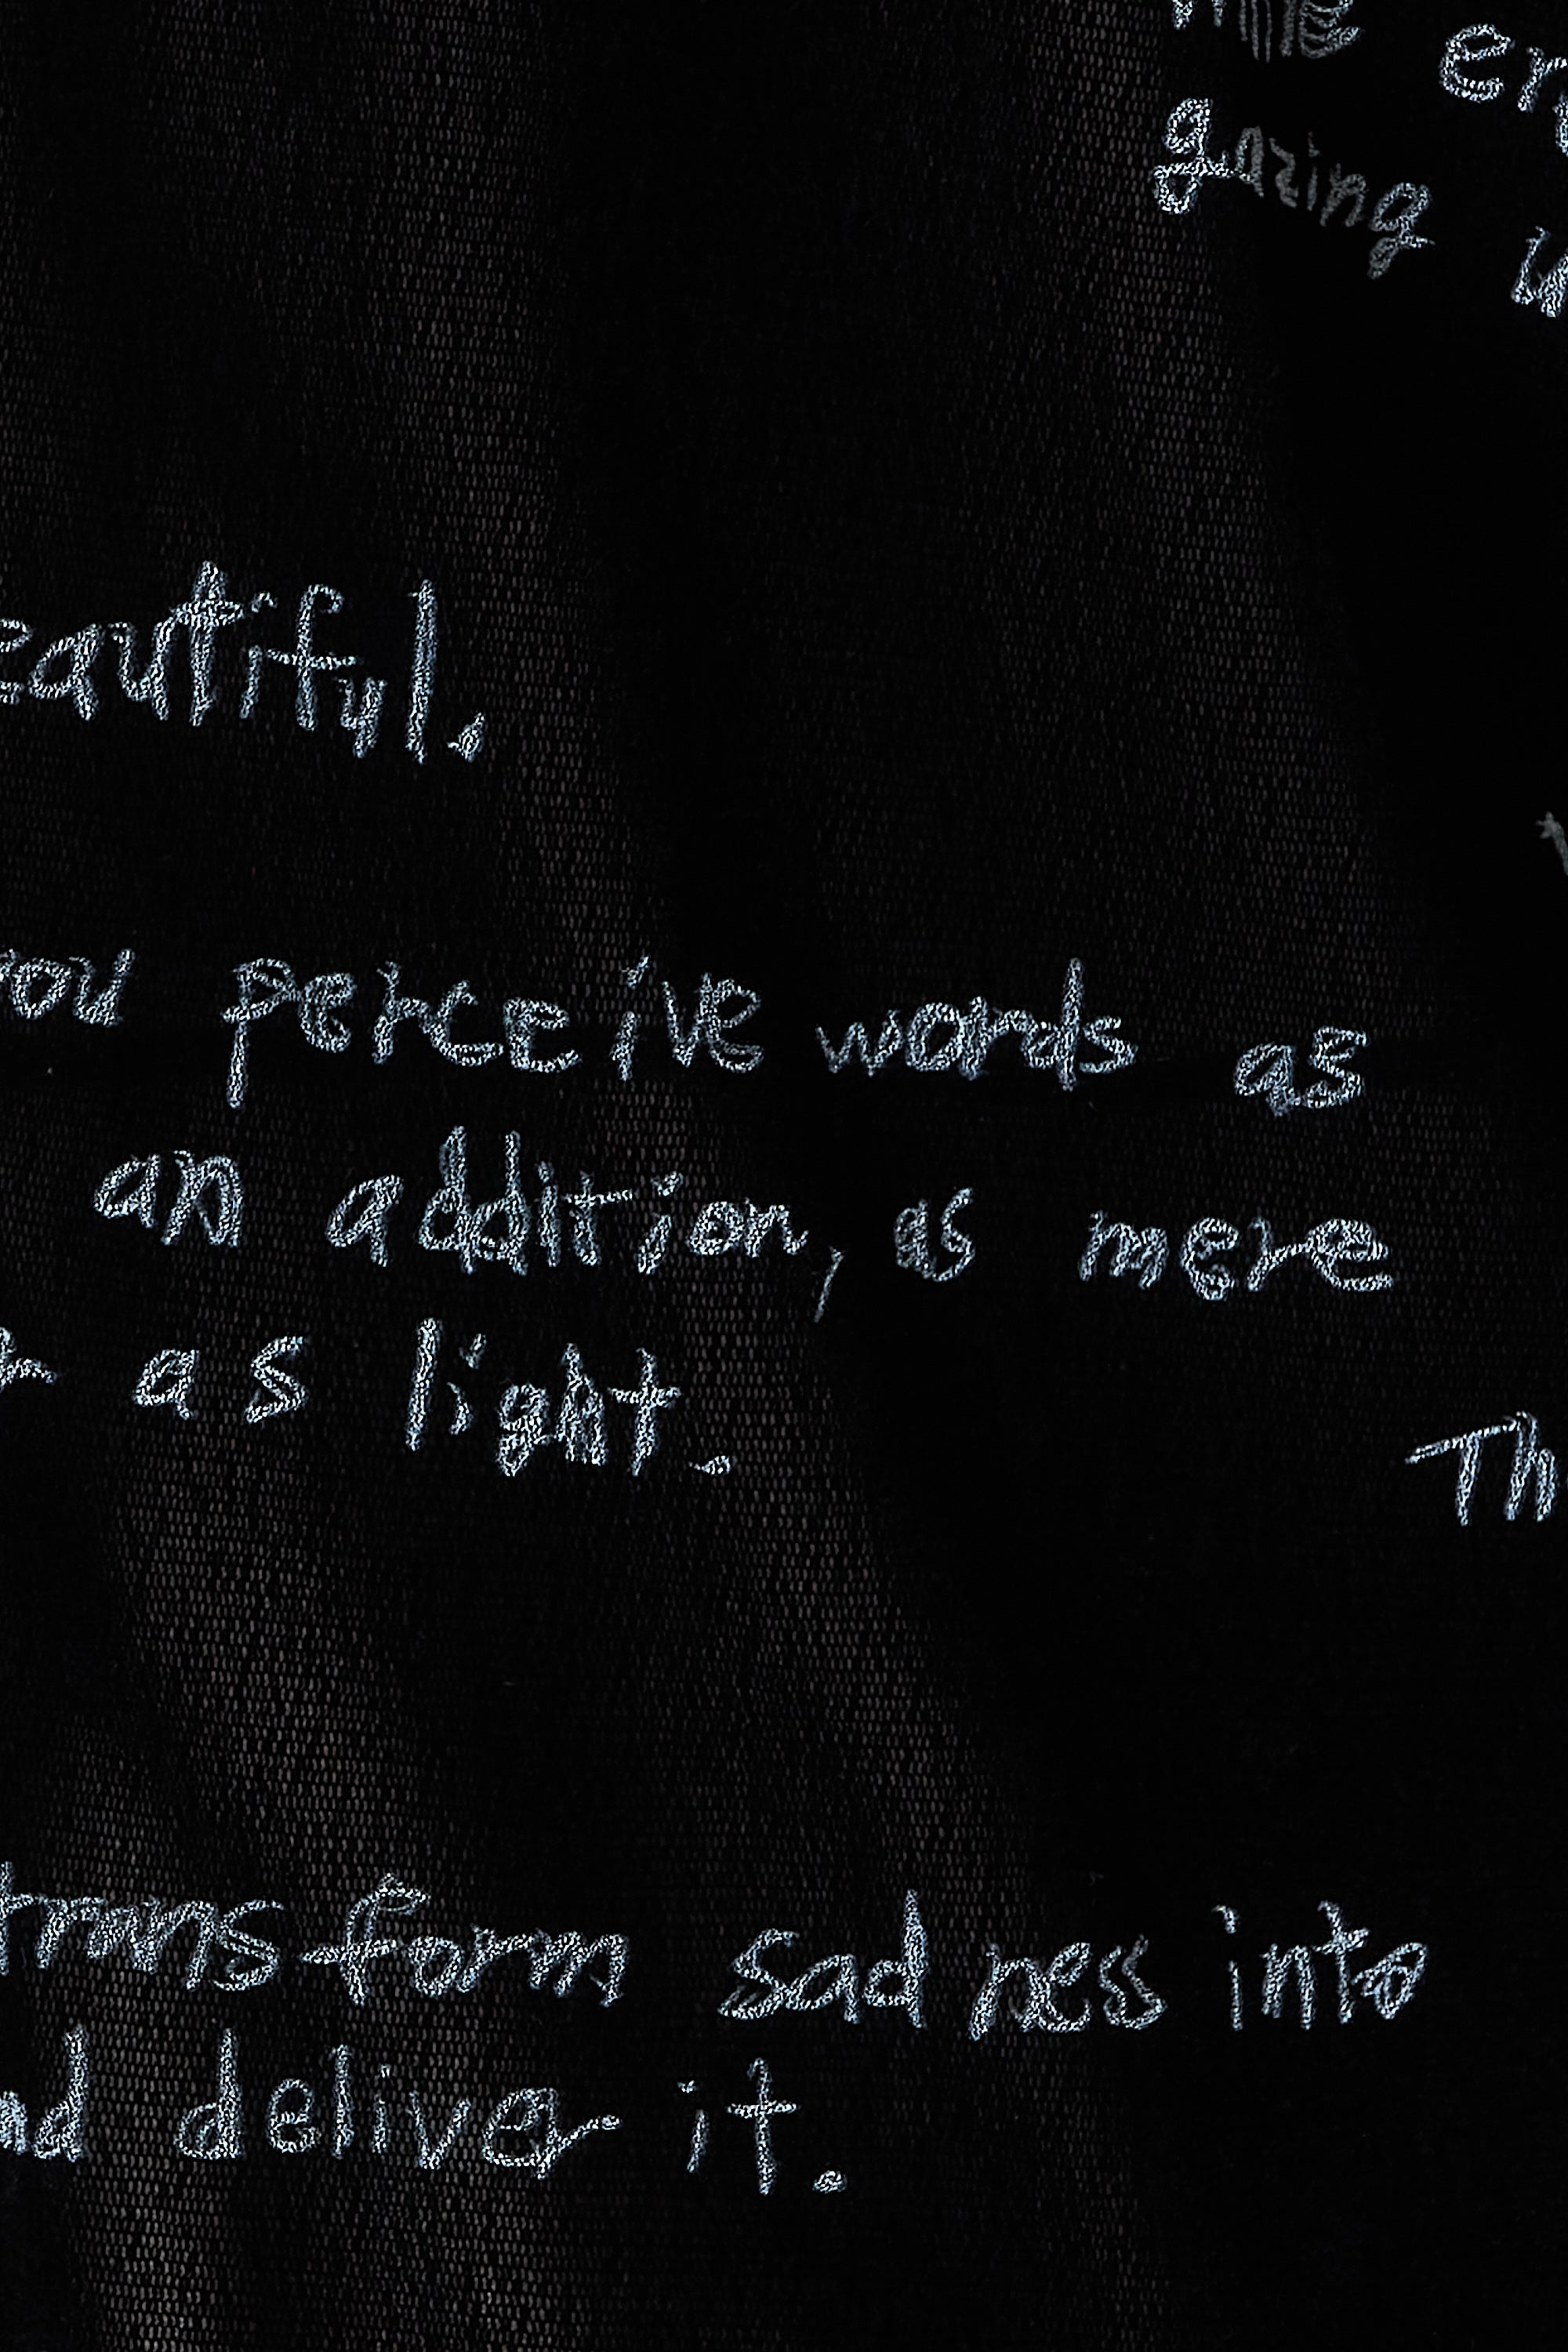 gazing
eautiful.
ou perceive words as
an addition, as mere
as light.
Th
transform sadness into
nd deliver it.